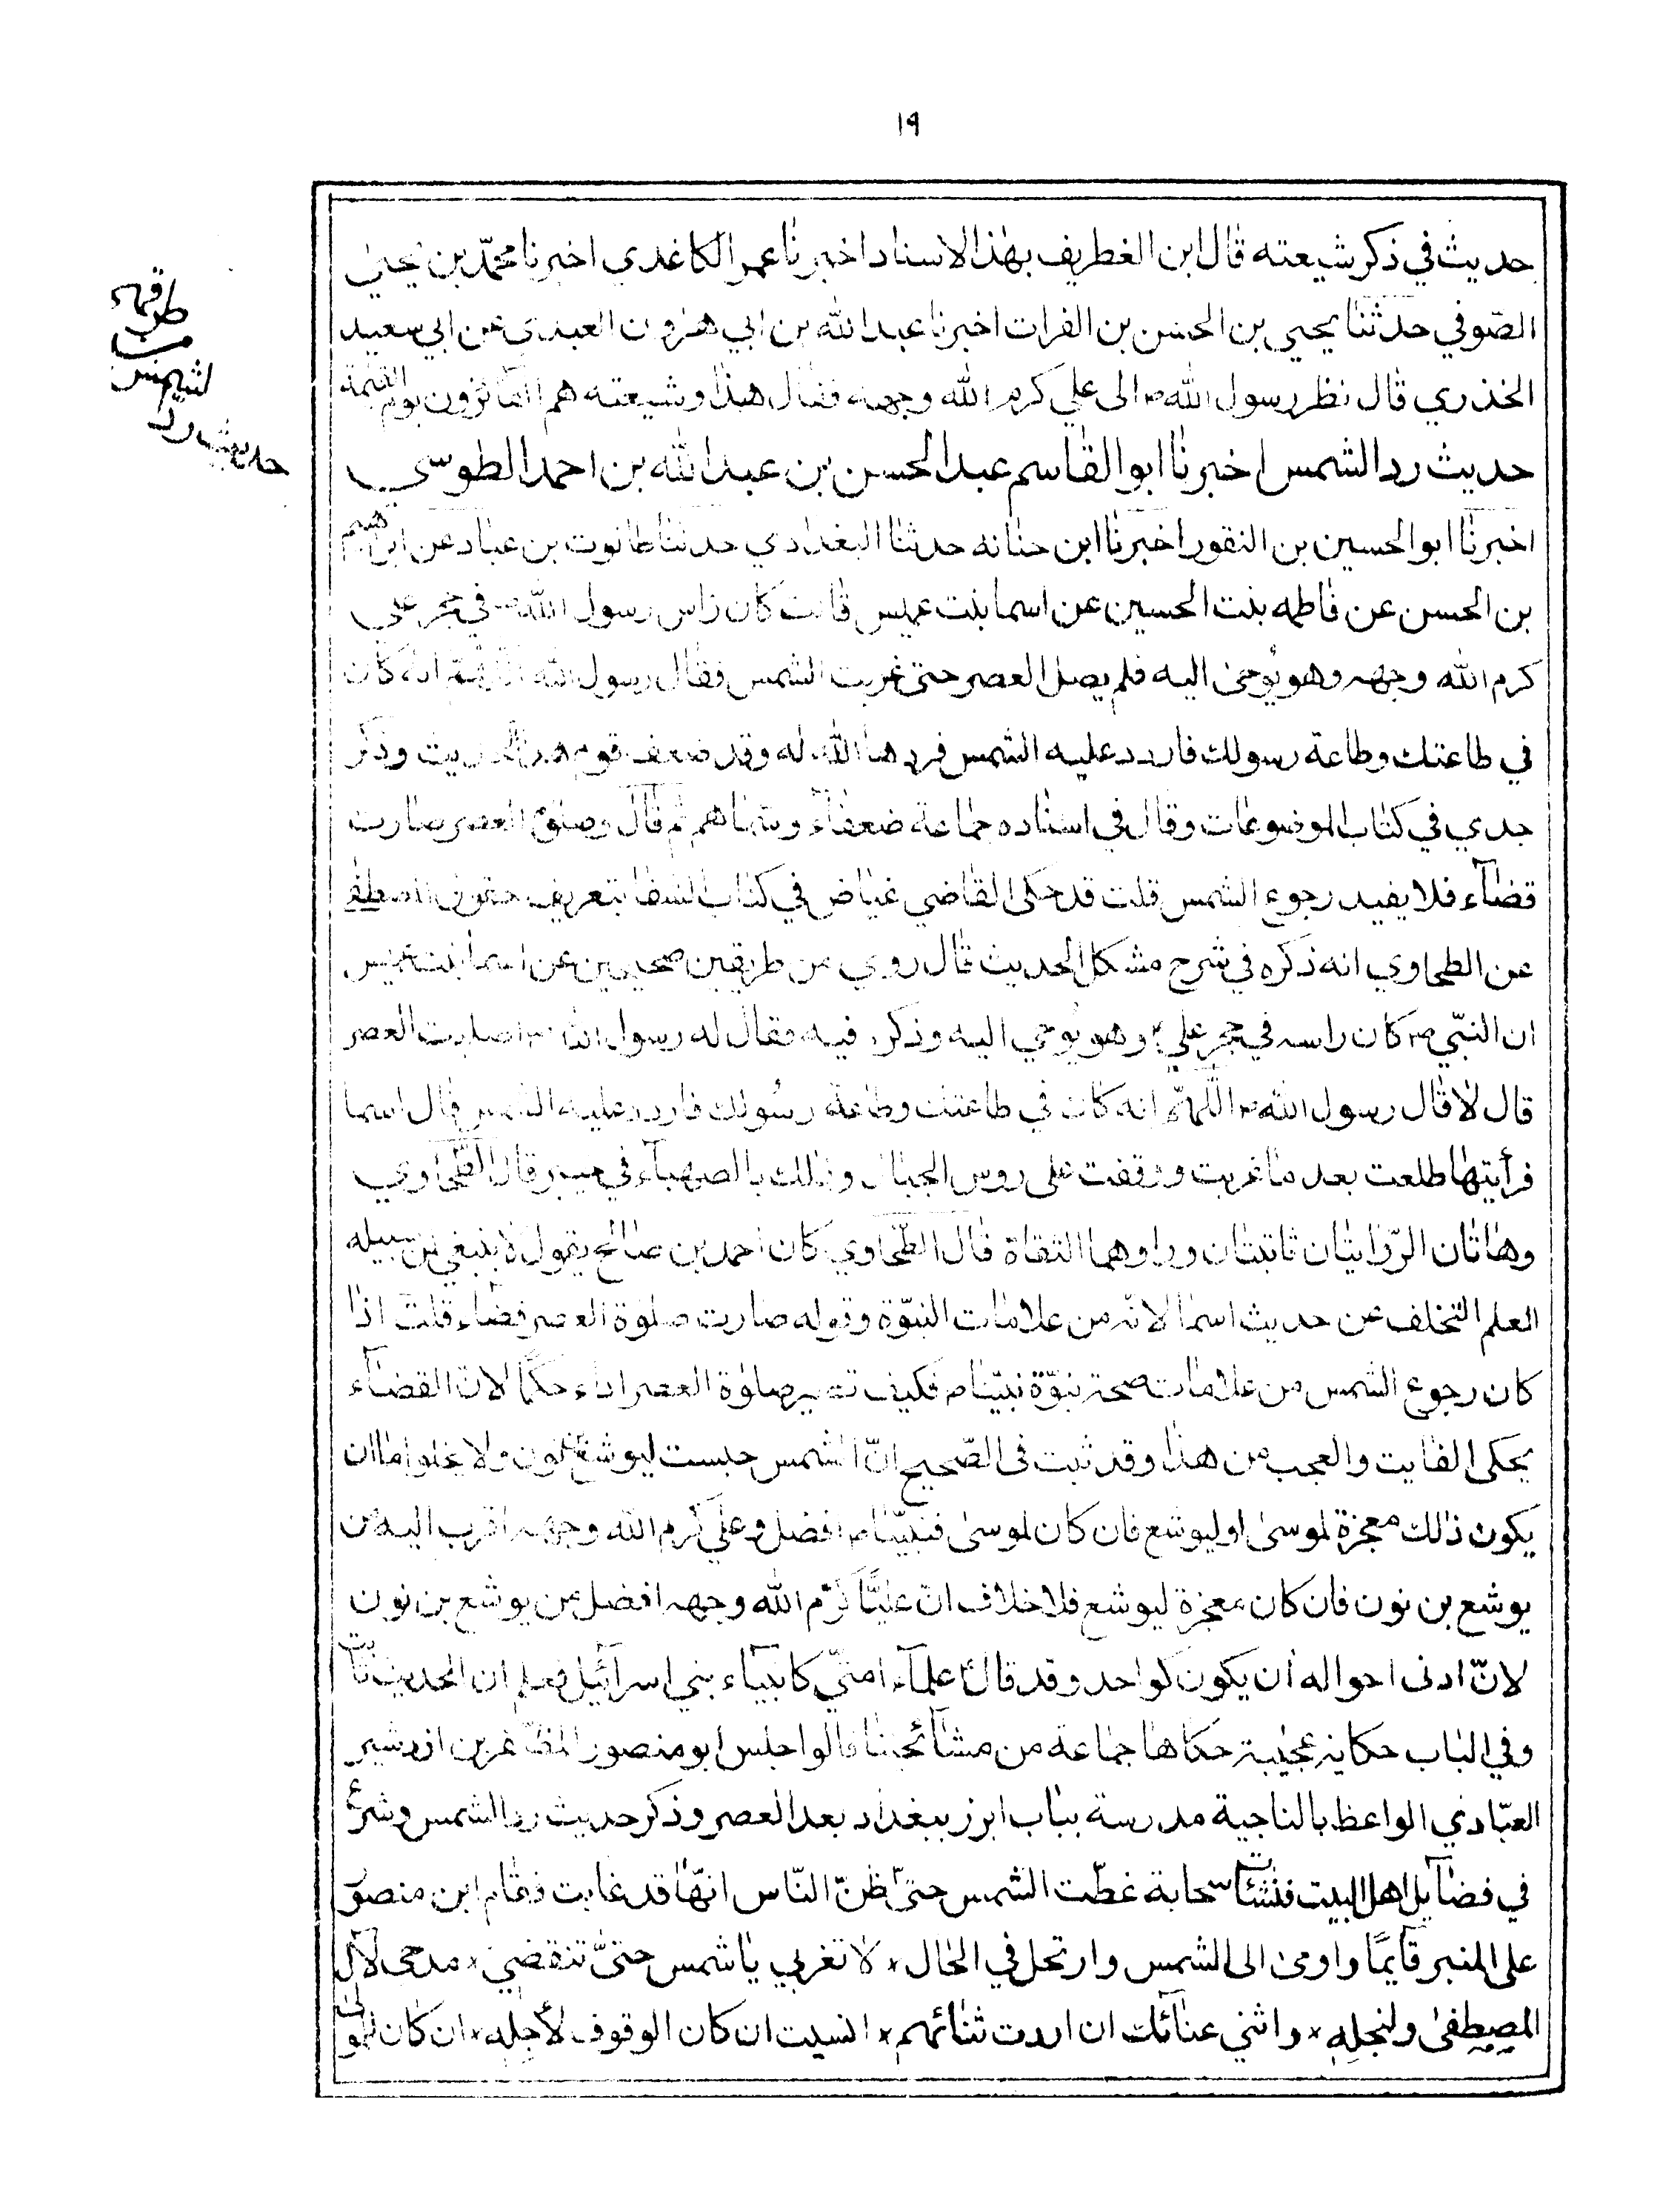 ١٩
حديث في ذكر شيعته قال ابن الغطريف بهذا الاسناد اخبرنا عمر الكاغدي اخبرنا محمّد بن يحيى
الصّوفي حدثنا يحيي بن الحسن بن الفرات اخبرنا عبد الله بن ابي هرون العبدي عن ابي سعيد
الخذري قال نظر رسول الله ص الى علي كرم الله وجهه فقال هذا وشيعته هم الفائزون يوم القيمة
حديث رد الشمس اخبرنا ابو القاسم عبد الحسن بن عبد الله بن احمد الطوسي
اخبرنا ابو الحسين بن النقور اخبرنا ابن حنانه حدثنا البغدادي حدثنا طالوت بن عباد عن ابراهيم
بن الحسن عن فاطمه بنت الحسين عن اسما بنت عميس قالت كان راس رسول الله ص في حجر علي
كرم الله وجهه وهو يوحى اليه فلم يصل العصر حتى غربت الشمس فقال رسول الله اللّهمّ انه كان
في طاعتك وطاعة رسولك فاردد عليه الشمس فردها الله له وقد ضعف قوم هذا الحديث وذكر
جدي في كتاب الموضوعات وقال في اسناده جماعة ضعفاء وسماهم ثم قال وصلوة العصر صارت
قضاء فلا يفيد رجوع الشمس قلت قد حكى القاضي عياض في كتاب الشفا بتعريف حقوق المصطفى
عن الطحاوي انه ذكره في شرح مشكل الحديث قال روي من طريقين صحيحين عن اسما بنت عميس
ان النبّي ص كان راسه في حجر علي ع وهو يوحي اليه وذكر فيه فقال له رسول الله ص اصليت العصر
قال لا قال رسول الله ص اللّهمّ انه كان في طاعتك وطاعة رسولك فاردد عليه الشمس قال اسما
فرأيتها طلعت بعد ما غربت ووقفت على روس الجبال وذلك بالصهباء في خيبر قال الطّحاوي
وهاتان الرّوايتان ثابتتان وراوهما الثقاة قال الطّحاوي كان احمد بن صالح يقول لا ينبغي لمن سبيله
العلم التخلف عن حديث اسما لانّه من علامات النبوّة وقوله صارت صلوة العصر قضاء قلت اذا
كان رجوع الشمس من علامات صحة نبوّة نبيّنا ص فكيف تصير صلوة العصر اداء حكمًا لانّ القضاء
يحكى الفايت والعجب من هذا وقد ثبت في الصّحيح انّ الشمس حبست ليوشع بن نون ولا يخلوا ما ان
يكون ذلك معجزة لموسى او ليوشع فان كان لموسى فنبيّنا ص افضل وعلي كرم الله وجهه اقرب اليه من
يوشع بن نون فان كان معجزة ليوشع فلا خلاف انّ عليًّا كرّم الله وجهه افضل من يوشع بن نون
لانّ ادنى احواله أن يكون كواحد وقد قال ع علماء امتي كانبياء بني اسرائيل فعلم ان الحديث ثابت
وفي الباب حكاية عجيبة حكاها جماعة من مشائخنا قالوا جلس ابو منصور المظفر بن ازدشير
العبّادي الواعظ بالناجية مدرسة بباب ابرز ببغداد بعد العصر وذكر حديث رد الشمس وشرع
في فضايل اهل البيت فنشئات سحابة غطّت الشمس حتىّ ظنّ النّاس انهّا قد غابت فقام ابن منصور
على المنبر قايمًا واومى الى الشمس وارتحل في الحال * لا تغربي يا شمس حتىّ تنقضي * مدحى لآل
المصطفى ولنجله * واثني عنائك ان اردت ثنائهم * انسيت ان كان الوقوف لأجله * ان كان للمولى
حديث رد
الشمس
من
طرقه